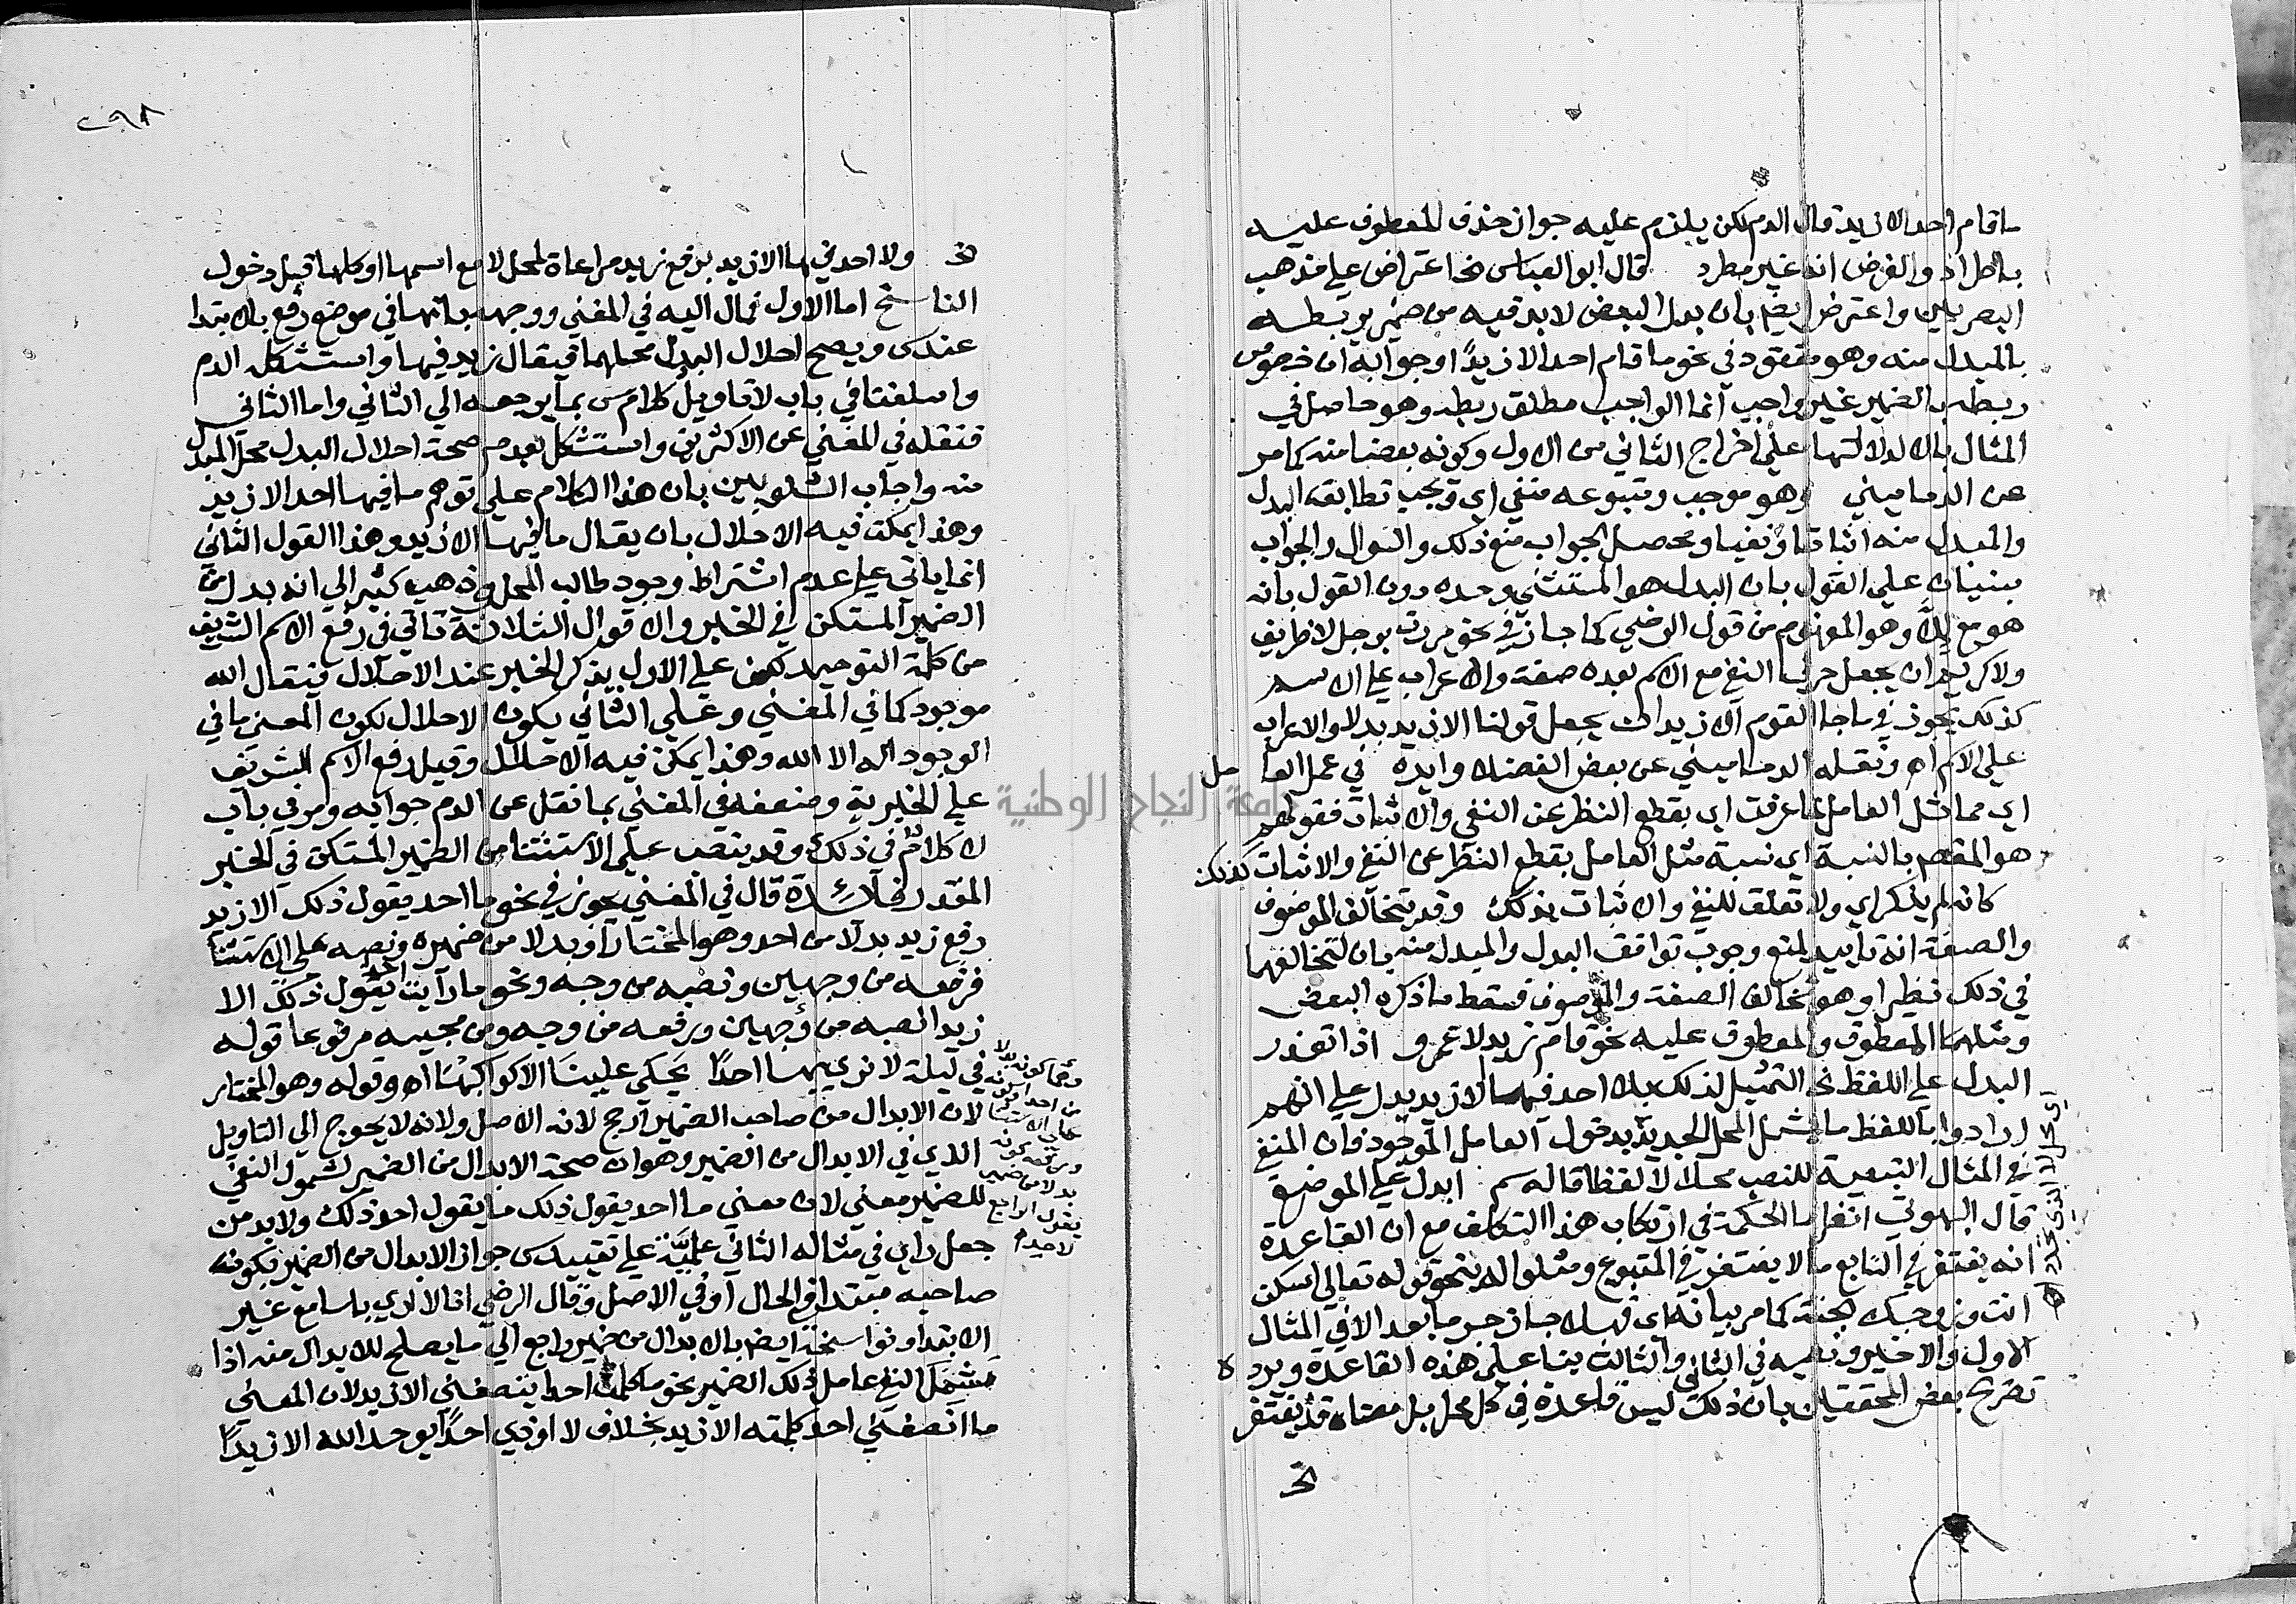 ما قام احد الا زيد قال الدم لكن يلزم عليه جواز حذف المعطوف عليه
باطراد والفرض انه غير مطرد قال ابو العباس الخ اعتراض على مذهب
البصريين واعترض ايضم بان بدل البعض لابد فيه من ضمير يربطه
بالمبدل منه وهو مفقود في نحو ما قام احد الا زيدا وجوابه ان خصوص
ربطه بالضمير غير واجب انما الواجب مطلق ربطه وهو حاصل في
المثال بالا لدلالتها على اخراج الثاني من الاول وكونه بعضا منه كما مر
عن الدماميني وهو موجب ومتبوعه منفي اي ويجب تطابق البدل
والمبدل منه اثباتا ونفيا ومحصل الجواب منع ذلك والسوال والجواب
مبنيان على القول بان البدل هو المستثنى وحده دون القول بانه
هو مع الا وهو المفهوم من قول الرضي كما جاز في نحو مررت برجل لا ظريف
ولا كريم ان يجعل حرف النفي مع الاسم بعده صفة والاعراب على الاسم
كذلك يجوز في ما جا القوم الا زيد ان يجعل قولنا الا زيد بدلا والاعراب
على الاسم اه ونقله الدماميني عن بعض الفضلا وايده في عمل العامل
اي مماثل العامل لما عرفت اي بقطع النظر عن النفي والاثبات فقولهم
هو المقصود بالنسبة اي نسبة مثل العامل بقطع النظر عن النفي والاثبات كذلك
كانه لم يذكر اي ولا تعلق للنفي والاثبات بذلك وقد تتخالف الموصوف
والصفة انه تاييد لمنع وجوب توافق البدل والمبدل منه بان لتخالفهما
في ذلك نظيرا وهو تخالف الصفة والموصوف فسقط ما ذكره البعض
ومثلهما المعطوف والمعطوف عليه نحو قام زيد لا عمرو اذا تعذر
البدل على اللفظ الخ التمثيل لذلك بلا احد فيها الا زيد يدل على انهم
ارادوا باللفظ ما يشمل المحل الجديد بدخول العامل الموجود فان المنفي
في المثال التبعية للنصب محلا لا لفظا قاله سم ابدل على الموضع
قال البهوتي انظر ما الحكمة في ارتكاب هذا التكلف مع ان القاعدة
انه يغتفر في التابع ما لا يغتفر في المتبوع ومثلوا له بنحو قوله تعالى اسكن
انت وزوجك الجنة كما مر بيانه اي فهلا جاز جر ما بعد الا في المثال
الاول والاخير ونصبه في الثاني والثالث بنا على هذه القاعدة ويرد
تصريح بعض المحققين بان ذلك ليس قاعدة في كل محل بل معناه قد يغتفر
الخ
٢٩٨
الخ ولا احد فيها الا زيد برفع زيد مراعاة لمحل لا مع اسمها او كلها قبل دخول
الناسخ اما الاول فمال اليه في المغني ووجهه بانها في موضع رفع بالابتدا
عندس ويصح احلال البدل محلهما فيقال زيد فيها واستشكله الدم
واسلفنا في باب لا تاويل كلام س بما يرجعه الي الثاني واما الثاني
فنقله في المغني عن الاكثرين واستشكل بعدم صحة احلال البدل محل المبدل
منه واجاب الشلوبين بان هذا الكلام على توهم ما فيها احد الا زيد
وهذا يمكن فيه الاحلال بان يقال ما فيها الا زيد وهذا القول الثاني
انما ياتي على عدم اشتراط وجود طالب المحل وذهب كثير الي انه بدل من
الضمير المستكن في الخبر والاقوال الثلاثة تاتي في رفع الاسم الشريف
من كلمة التوحيد لكن على الاول يذكر الخبر عند الاحلال فيقال الله
موجود كما في المغني وعلي الثاني يكون الاحلال لكون المعنى ما في
الوجود اله الا الله وهذا يمكن فيه الاحلال وقيل رفع الاسم الشريف
على الخبرية وضعفه في المغني بما نقل عن الدم جوابه ومر في باب
لا كلام في ذلك وقد ينصب على الاستثنا من الضمير المستكن في الخبر
المقدر فائدة قال في المغني يجوز في نحو ما احد يقول ذلك الا زيد
رفع زيد بدلا من احد وهو المختار او بدلا من ضميره ونصبه على الاستثنا
فرفعه من وجهين ونصبه من وجه ونحو ما رايت احدا يقول ذلك الا
زيدا نصبه من وجهين ورفعه من وجه ومن مجيبه مرفوعا قوله
في ليلة لا نري بها احدا يحكي علينا الا كواكبها اه وقوله وهو المختار
لان الابدال من صاحب الضمير ارجح لانه الاصل ولانه لا يحوج الي التاويل
الذي في الابدال من الضمير وهو ان صحة الابدال من الضمير لشمول النفي
للضمير معني لان معني ما احد يقول ذلك ما يقول احد ذلك ولابد من
جعل راي في مثاله الثاني علمية على تقييد س جواز الابدال من الضمير بكونه
صاحبه مبتدا في الحال او في الاصل وقال الرضي انا لا اري باسا مع غير
الابتدا ونواسخه ايضم بالابدال من ضمير راجع الي ما يصلح للابدال منه اذا
شمل النفي عامل ذلك الضمير نحو ما كلمت احدا ينصفني الا زيد لان المعنى
ما انصفني احد كلمته الا زيد بخلاف لا اوذي احدا يوحد الله الا زيدا
جامعة النجاح الوطنية